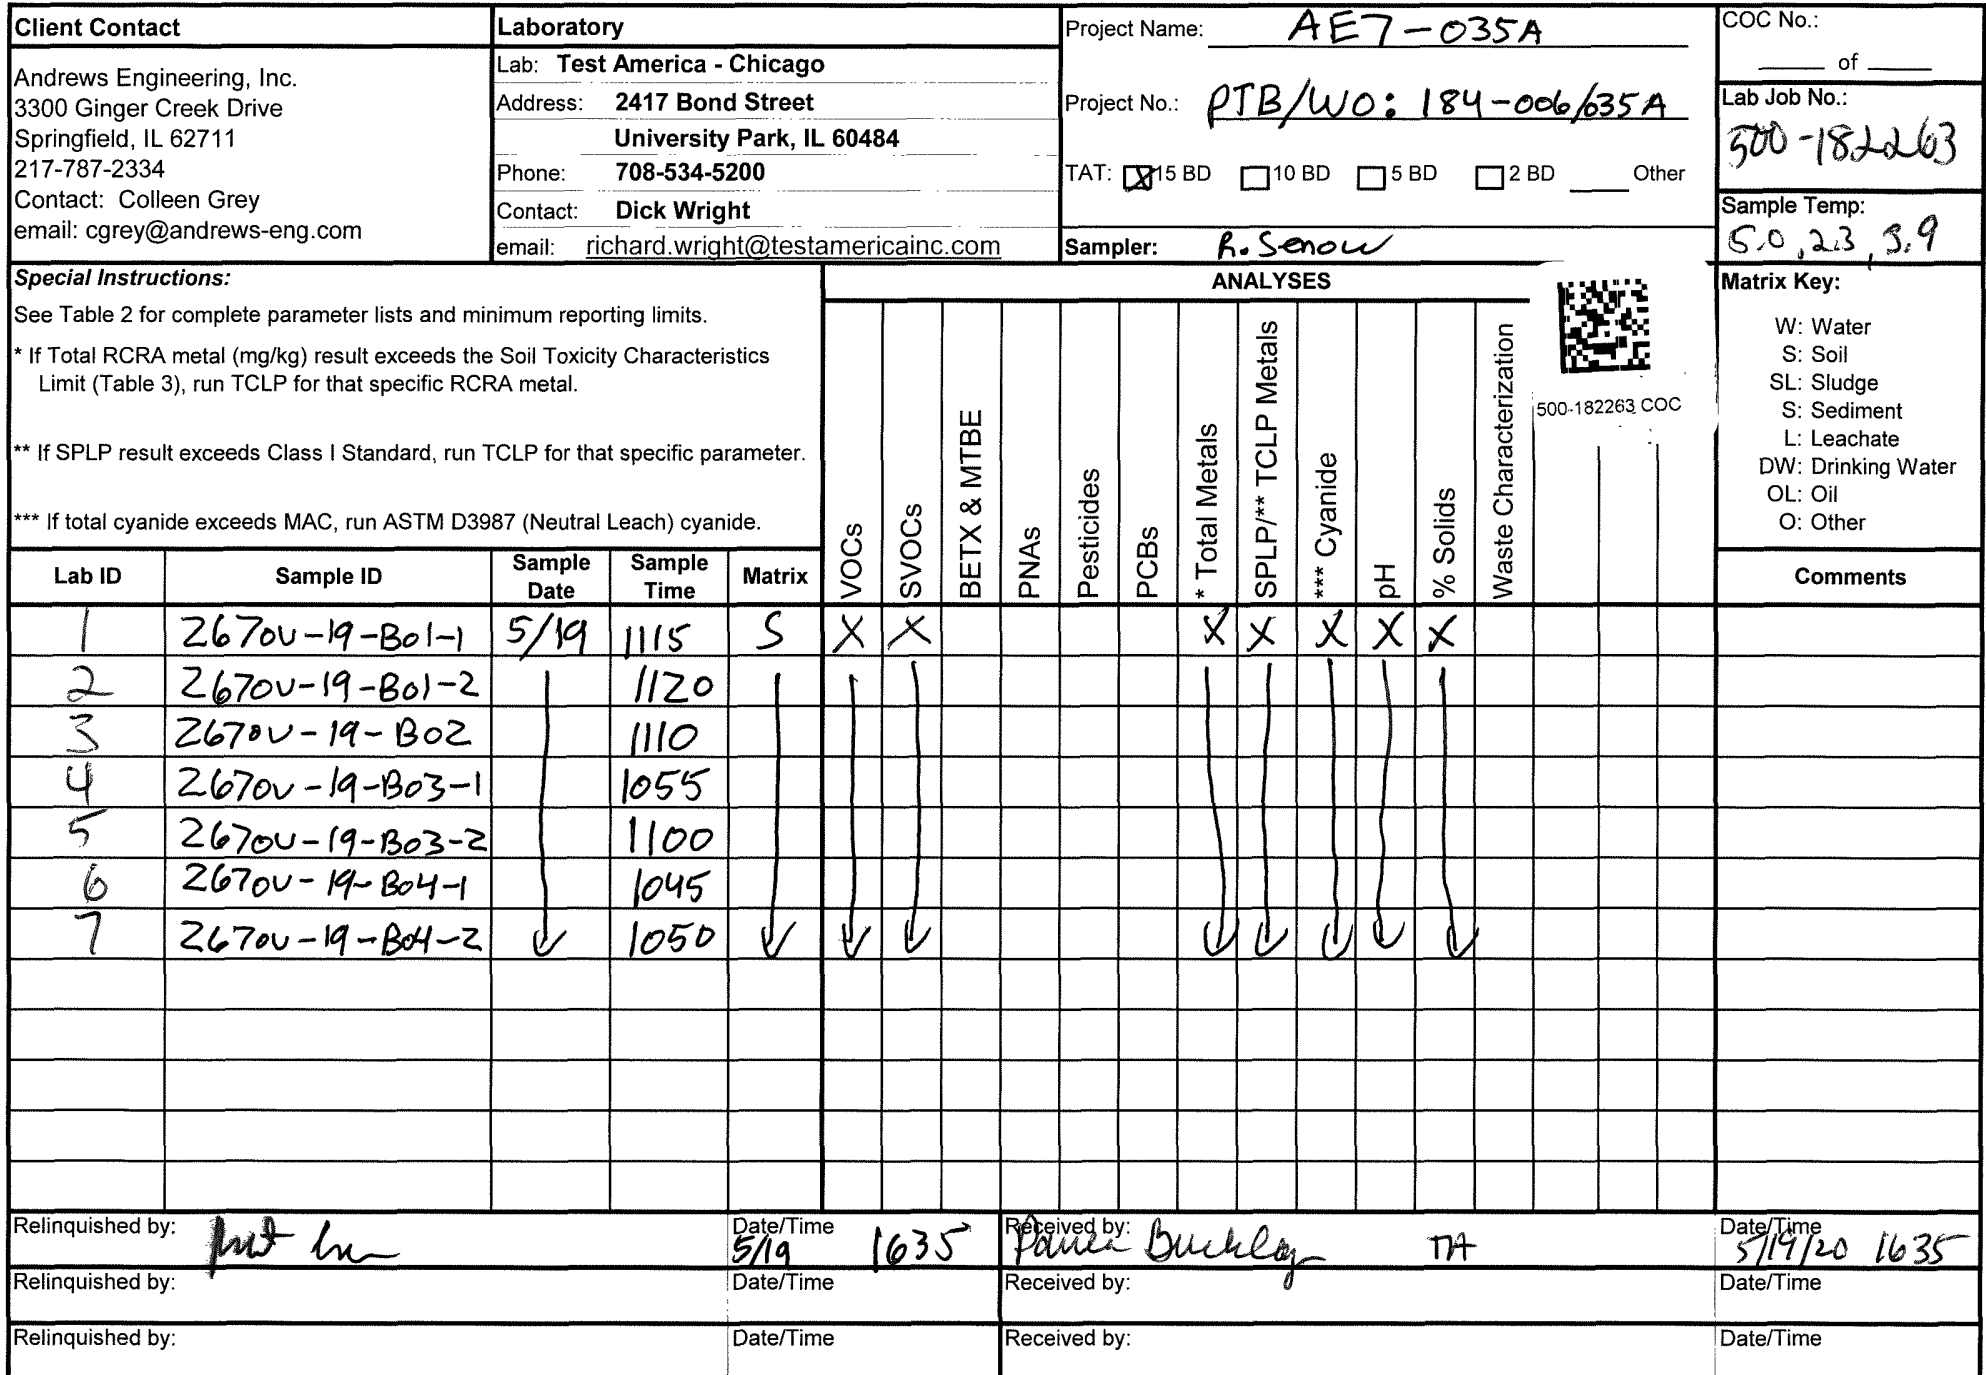 Client Contact
Andrews Engineering, Inc.
3300 Ginger Creek Drive
Springfield, IL 62711
217-787-2334
Contact: Colleen Grey
email: cgrey@andrews-eng.com
Laboratory
Lab: Test America - Chicago
Address: 2417 Bond Street
University Park, IL 60484
Phone: 708-534-5200
Contact: Dick Wright
email: richard.wright@testamericainc.com
Project Name: AE7-035A
Project No.: PTB/WO: 184-006/035A
TAT: X 15 BD 10 BD 5 BD 2 BD ____ Other
Sampler: R. Senow
COC No.:
____ of ____
Lab Job No.:
500-182263
Sample Temp:
5.0, 2.3, 3.9
Special Instructions:
See Table 2 for complete parameter lists and minimum reporting limits.
* If Total RCRA metal (mg/kg) result exceeds the Soil Toxicity Characteristics
Limit (Table 3), run TCLP for that specific RCRA metal.
** If SPLP result exceeds Class I Standard, run TCLP for that specific parameter.
*** If total cyanide exceeds MAC, run ASTM D3987 (Neutral Leach) cyanide.
ANALYSES
VOCs
SVOCs
BETX & MTBE
PNAs
Pesticides
PCBs
* Total Metals
SPLP/** TCLP Metals
*** Cyanide
pH
% Solids
Waste Characterization
500-182263 COC
Matrix Key:
W: Water
S: Soil
SL: Sludge
S: Sediment
L: Leachate
DW: Drinking Water
OL: Oil
O: Other
Lab ID Sample ID Sample Date Sample Time Matrix Comments
1 2670V-19-B01-1 5/19 1115 S X X X X X X X
2 2670V-19-B01-2 1120
3 2670V-19-B02 1110
4 2670V-19-B03-1 1055
5 2670V-19-B03-2 1100
6 2670V-19-B04-1 1045
7 2670V-19-B04-2 1050
Relinquished by: Date/Time 5/19 1635 Received by: Buckley TA Date/Time 5/19/20 1635
Relinquished by: Date/Time Received by: Date/Time
Relinquished by: Date/Time Received by: Date/Time